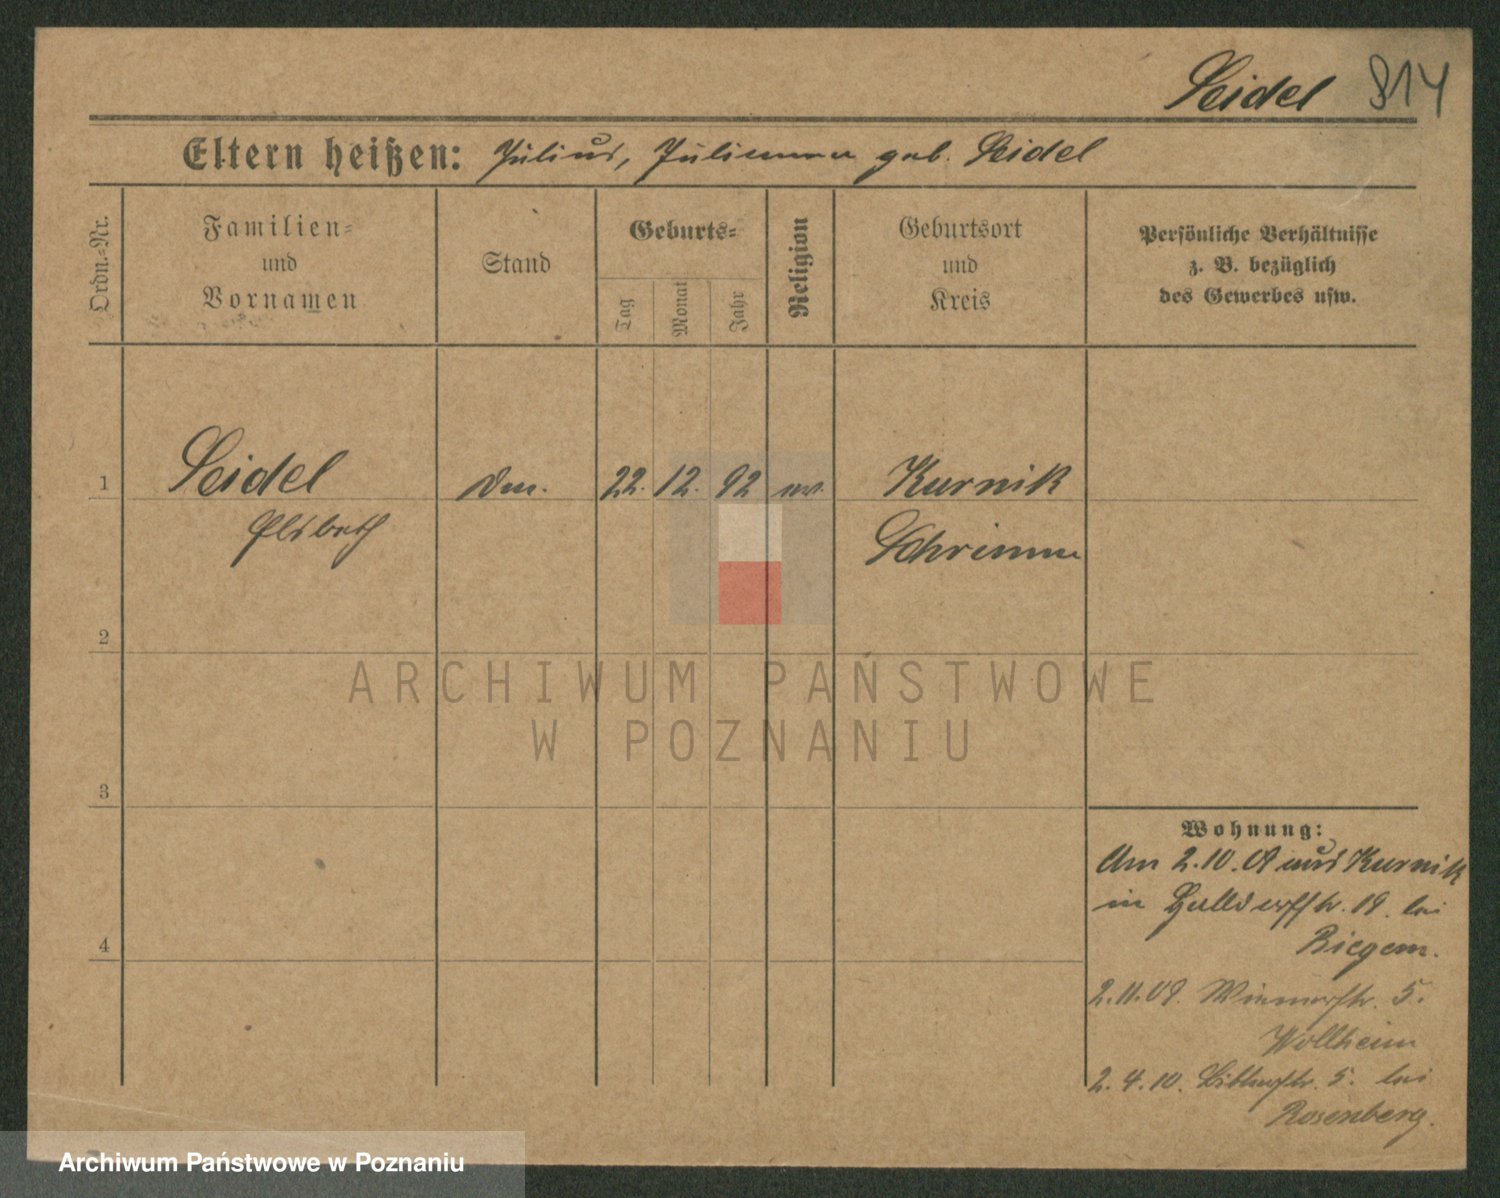 Seidel 814
Eltern heißen: Julius, Julianna geb. Seidel
Ordn.=Nr.
Familien=
und
Vornamen
Stand
Geburts=
Tag
Monat
Jahr
Religion
Geburtsort
und
Kreis
Persönliche Verhältnisse
z. B. bezüglich
des Gewerbes usw.
1 Seidel 22. 12. 92 ev. Kurnik
Elsbeth Schrimm
2
ARCHIWUM PAŃSTWOWE
W POZNANIU
3
Wohnung:
Am 2.10.09 aus Kurnik
in 19. bei
2.11.09. 5.
Wollheim
4
2.4.10. 5. bei
Rosenberg.
Archiwum Państwowe w Poznaniu